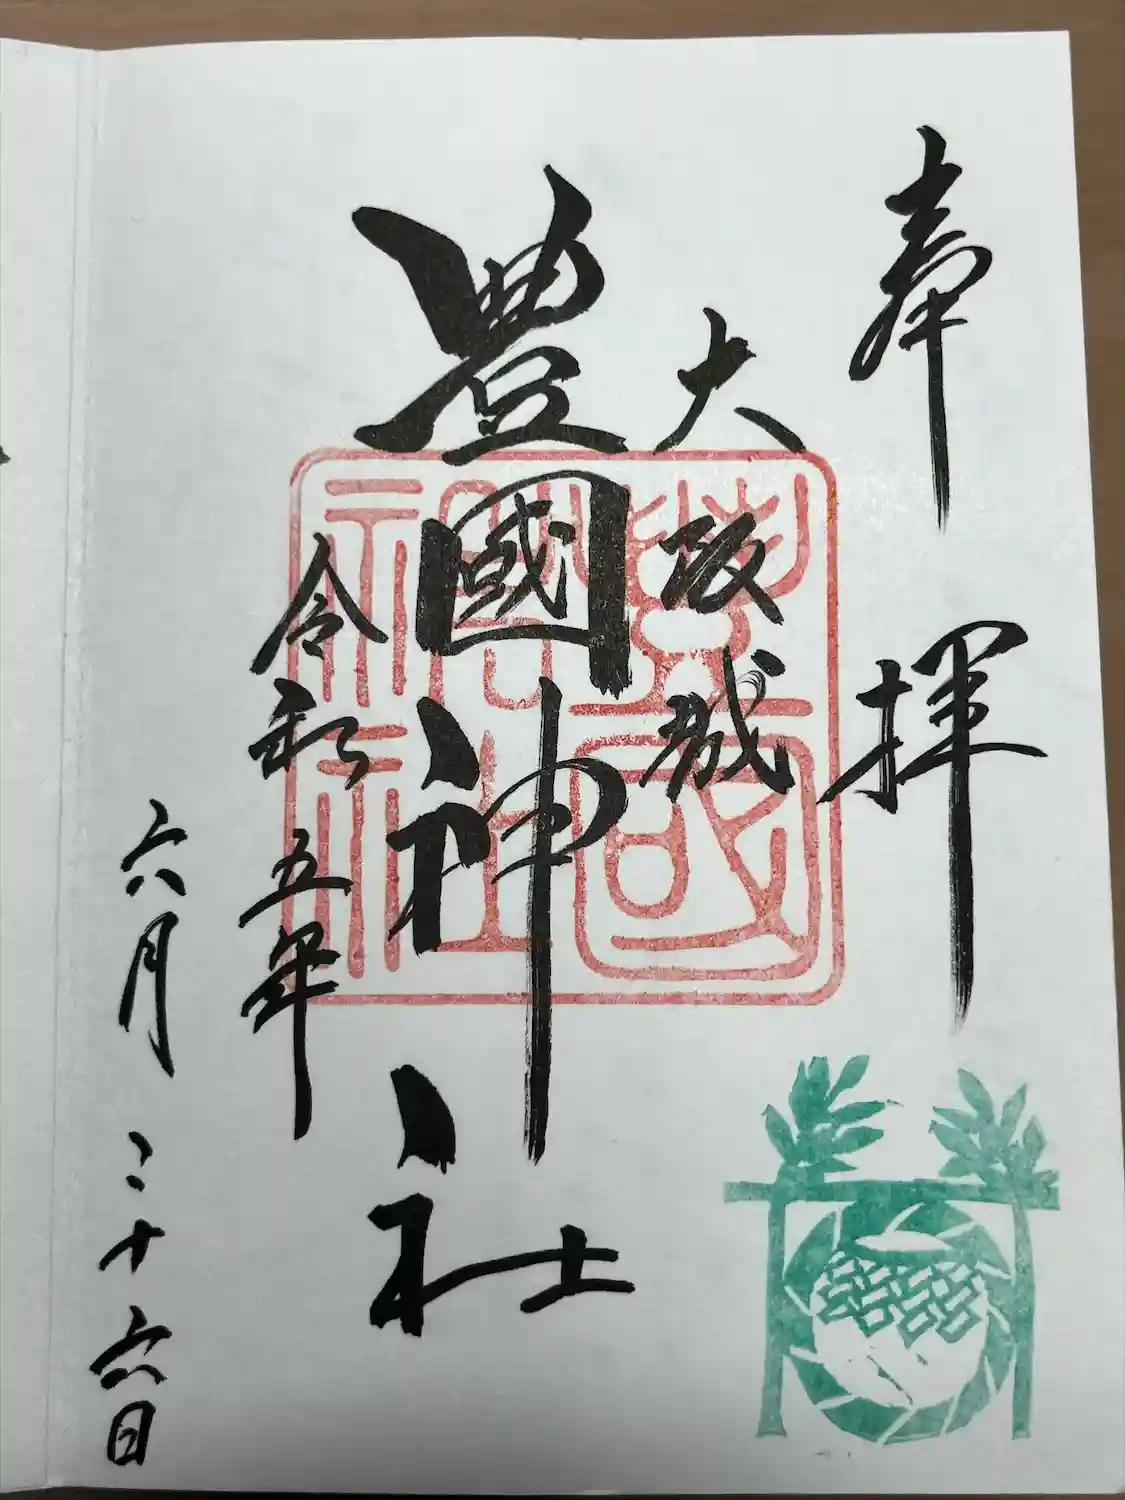 奉拝
大阪城
豊國神社
令和五年
六月二十六日
豊國
神社